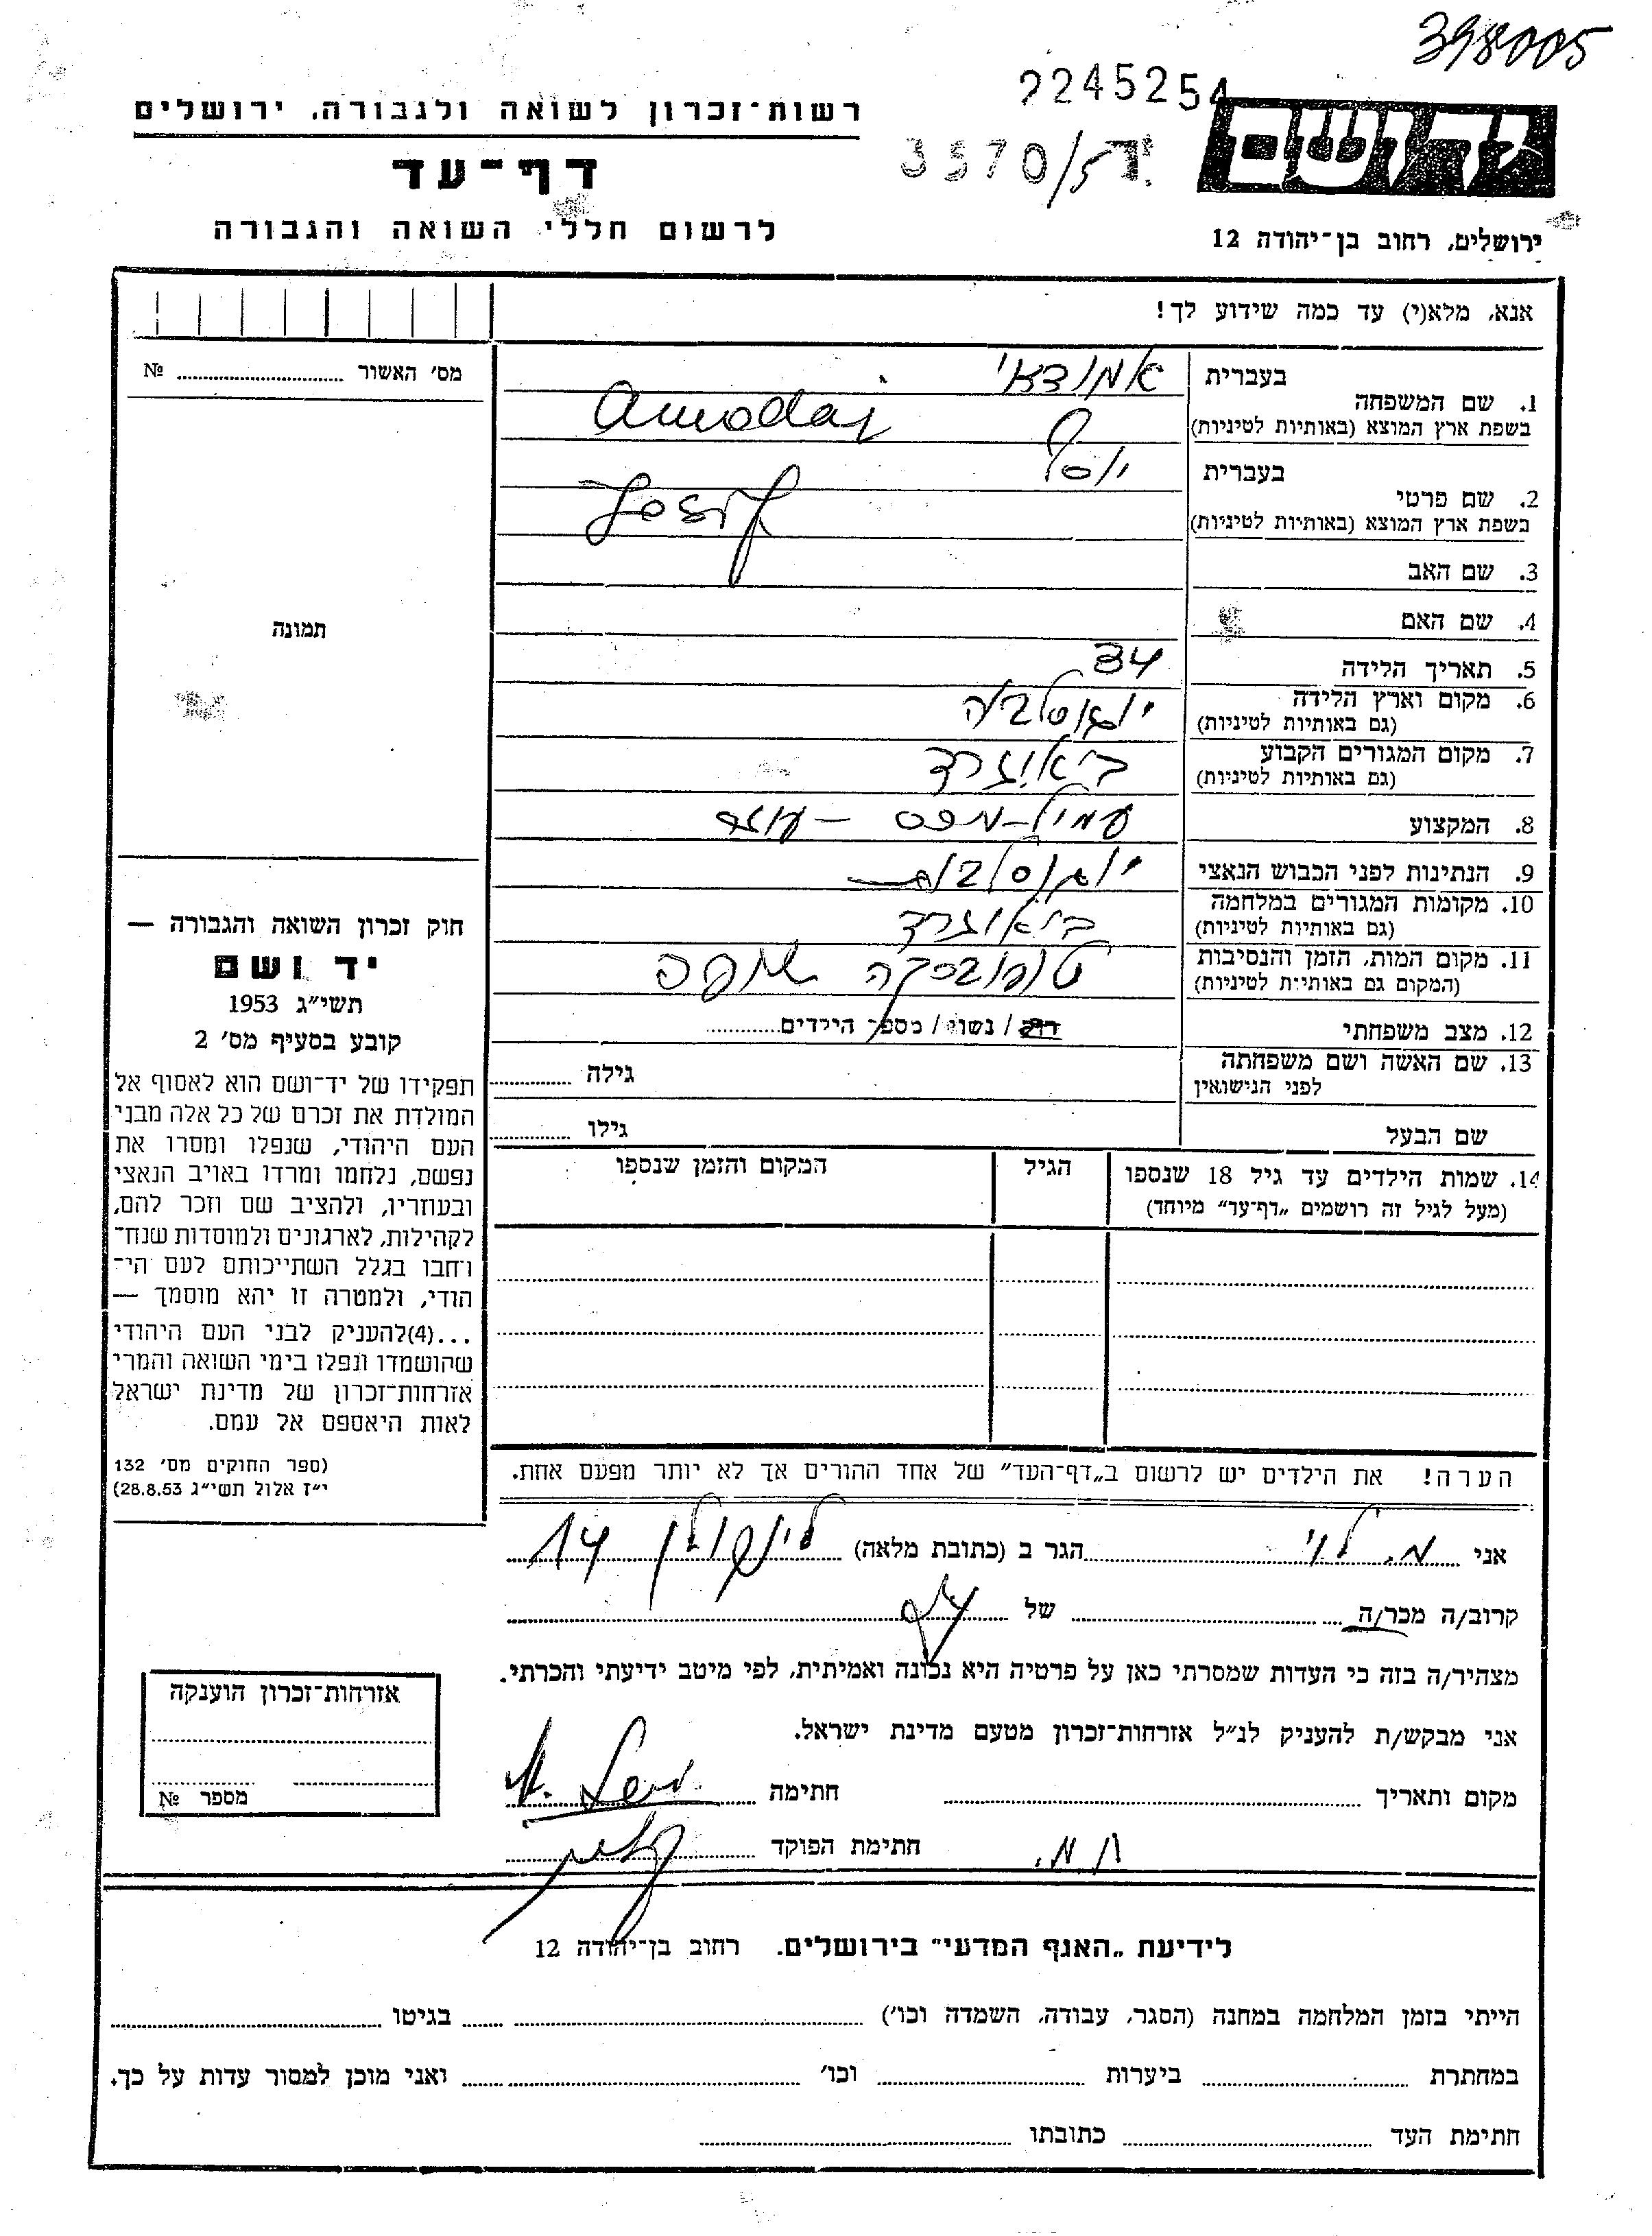 398005
2245254
3570/57
יד ושם
רשות־זכרון לשואה ולגבורה, ירושלים
דף־עד
לרשום חללי השואה והגבורה
ירושלים, רחוב בן־יהודה 12
אנא, מלא(י) עד כמה שידוע לך!
מס׳ האשור № 
תמונה
1. שם המשפחה בעברית אמודאי
בשפת ארץ המוצא (באותיות לטיניות) Amodaj
2. שם פרטי בעברית יוסף
בשפת ארץ המוצא (באותיות לטיניות) Josif
3. שם האב
4. שם האם
5. תאריך הלידה 34
6. מקום וארץ הלידה יוגוסלביה
(גם באותיות לטיניות)
7. מקום המגורים הקבוע ביאוגרד
(גם באותיות לטיניות)
8. המקצוע עמיל-מכס –
9. הנתינות לפני הכבוש הנאצי יוגוסלבית
10. מקומות המגורים במלחמה ביאוגרד
(גם באותיות לטיניות)
11. מקום המות, הזמן והנסיבות טופובסקה שופה
(המקום גם באותיות לטיניות)
12. מצב משפחתי רוק / נשוי / מספר הילדים
13. שם האשה ושם משפחתה גילה
לפני הנישואין
שם הבעל גילו
14. שמות הילדים עד גיל 18 שנספו הגיל המקום והזמן שנספו
(מעל לגיל זה רושמים „דף־עד״ מיוחד)
הערה! את הילדים יש לרשום ב„דף־העד״ של אחד ההורים אך לא יותר מפעם אחת.
חוק זכרון השואה והגבורה —
יד ושם
תשי״ג 1953
קובע בסעיף מס׳ 2
תפקידו של יד־ושם הוא לאסוף אל
המולדת את זכרם של כל אלה מבני
העם היהודי, שנפלו ומסרו את
נפשם, נלחמו ומרדו באויב הנאצי
ובעוזריו, ולהציב שם וזכר להם,
לקהילות, לארגונים ולמוסדות שנח־
רבו בגלל השתייכותם לעם הי־
הודי, ולמטרה זו יהא מוסמך —
...(4)להעניק לבני העם היהודי
שהושמדו ונפלו בימי השואה והמרי
אזרחות־זכרון של מדינת ישראל
לאות היאספם אל עמם.
(ספר החוקים מס׳ 132
י״ז אלול תשי״ג 28.8.53)
אני מ. לוי הגר ב (כתובת מלאה) לינקולן 14
קרוב/ה מכר/ה של
מצהיר/ה בזה כי העדות שמסרתי כאן על פרטיה היא נכונה ואמיתית, לפי מיטב ידיעתי והכרתי.
אני מבקש/ת להעניק לנ״ל אזרחות־זכרון מטעם מדינת ישראל.
מקום ותאריך חתימה M. Levi
ת.מ. חתימת הפוקד
אזרחות־זכרון הוענקה
מספר №
לידיעת „האגף המדעי״ בירושלים. רחוב בן־יהודה 12
הייתי בזמן המלחמה במחנה (הסגר, עבודה, השמדה וכו׳) בגיטו
במחתרת ביערות וכו׳ ואני מוכן למסור עדות על כך.
חתימת העד כתובתו